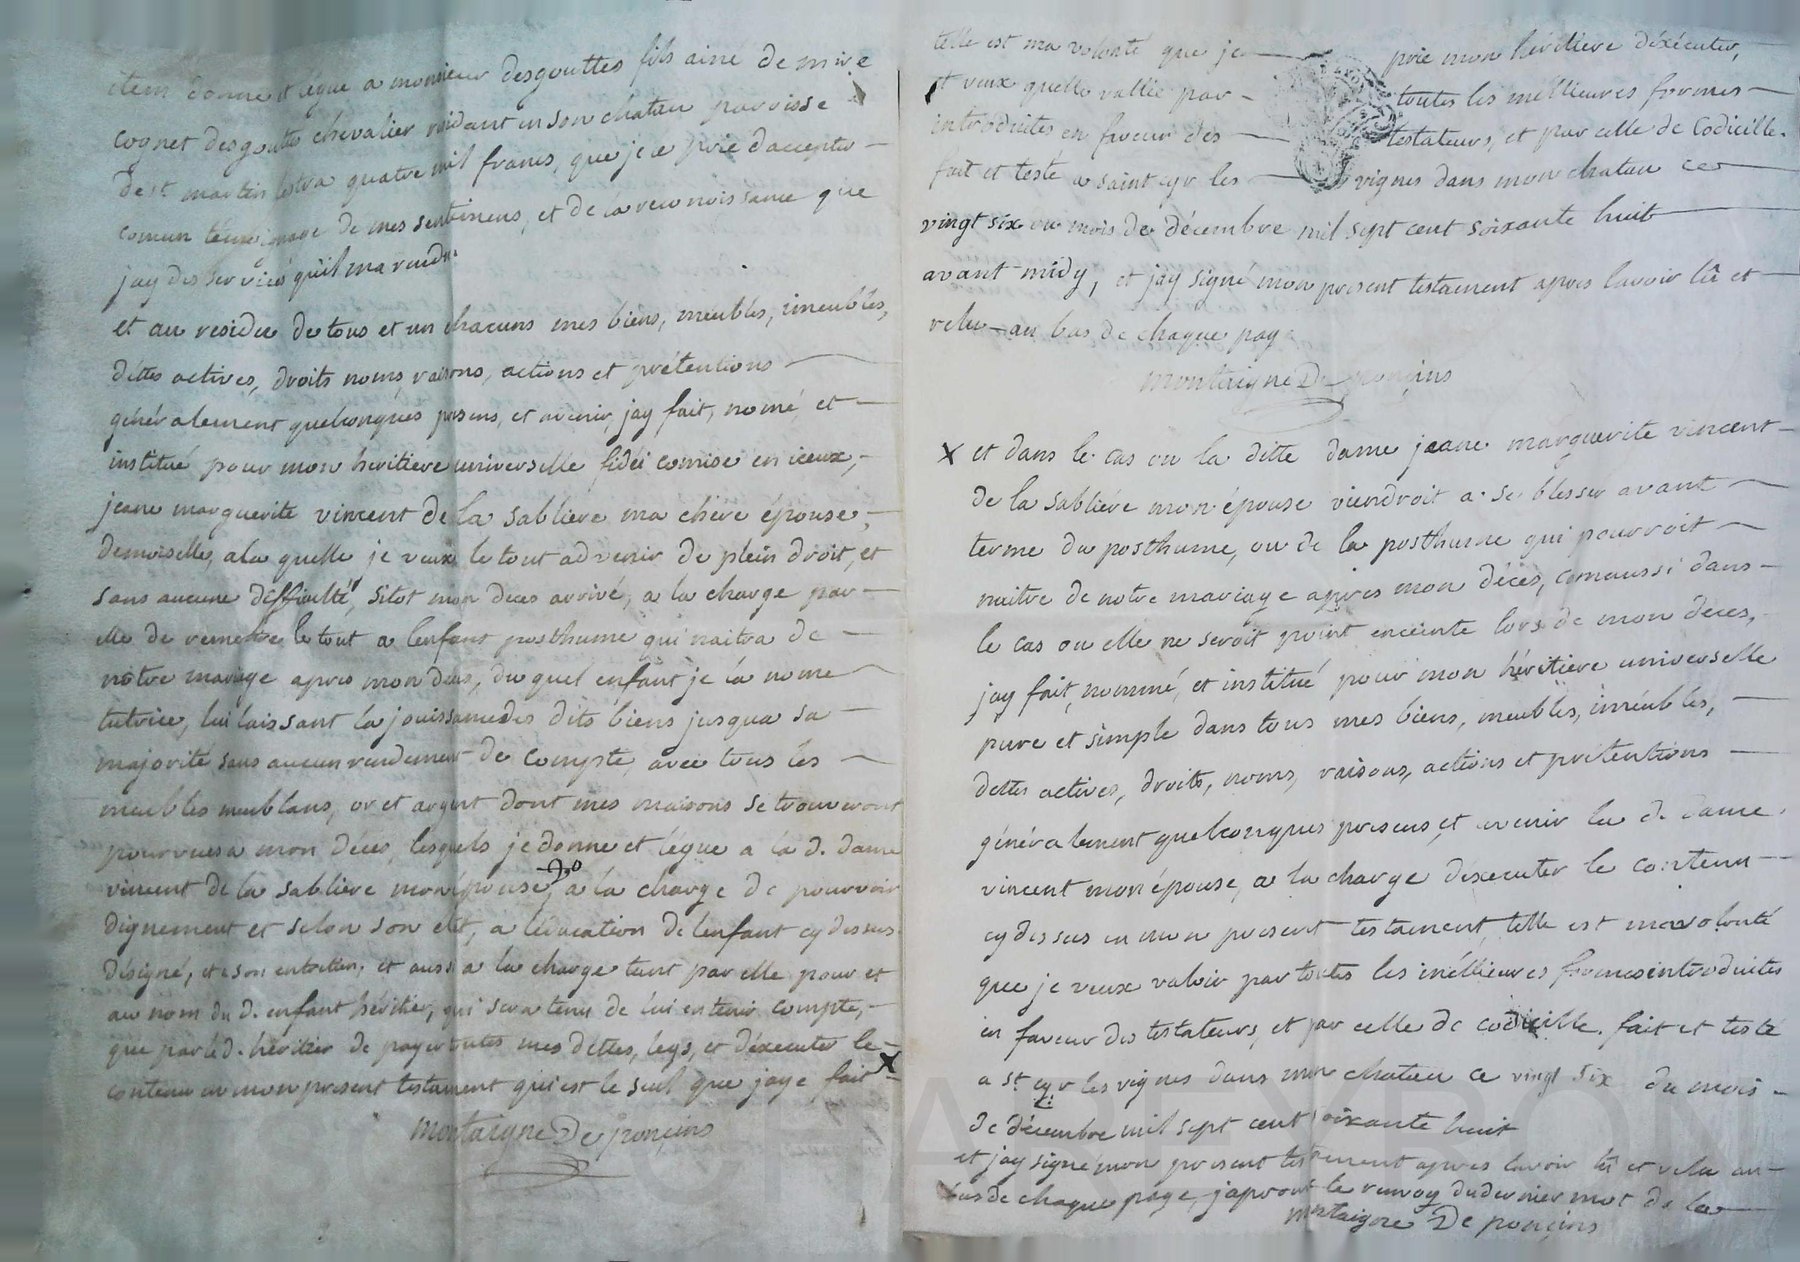 item donne et legue a monsieur desgouttes fils ainé de mire
cognet desgouttes chevalier residant en son chateu paroisse
de st. martin lestra quatre mil francs, que je le prie daccepter
comun temoignage de mes sentimens, et de la reconoissance que
jay des services quil ma rendu.
et au residu de tous et un chacuns mes biens, meubles, imeubles,
dittes actives, droits noms, raisons, actions et prétentions
généralement quelconques presens, et avenir, jay fait, nomé et
institué pour mon héritiere universelle fidei comise en iceux,
jeane marguerite vincent de la sabliere ma chère épouse,
demoiselle, a la quelle je veux le tout advenir de plein droit, et
sans aucune difficulté, sitot mon deces arrivé, a la charge par
elle de remettre le tout a lenfant posthume qui naitra de
notre mariage apres mon deces, du quel enfant je la nome
tutrice, lui laissant la jouissance des dits biens jusqua sa
majorité sans aucun rendement de compte, avec tous les
meubles meublans, or et argent dont mes maisons se trouveront
pourvues a mon déces, lesquels je donne et légue a la d. dame
vincent de la sabliere mon épouse, a la charge de pourvoir
dignement et selon son etat, a léducation de lenfant cy dessus
désigné, et a son entretien, et aussi a la charge tant par elle pour et
au nom du d. enfant heritier, qui sera tenu de lui en tenir compte,
que par le d. héritier de payer toutes mes dettes, legs, et déxecuter le
contenu en mon present testament qui est le seul que jaye fait X
montaigne De ponçins
telle est ma volonté que je prie mon héritiere déxécuter,
et veux quelle vallie par toutes les mellieures formes
introduites en faveur des testateurs, et par celle de Codicille.
fait et testé a saint cyr les vignes dans mon chateau ce
vingt six du mois de décembre mil sept cent soixante huit
avant midy, et jay signé mon present testament apres lavoir lû et
relu au bas de chaque page
montaigne De ponçins
X et dans le cas ou la ditte dame jeane marguerite vincent
de la sabliére mon épouse viendroit a se blesser avant
terme du posthume, ou de la posthume qui pourroit
naitre de notre mariage apres mon déces, comaussi dans
le cas ou elle ne seroit point enceinte lors de mon deces,
jay fait, nommé, et institué pour mon héritiere universelle
pure et simple dans tous mes biens, meubles, iméubles,
dettes actives, droits, noms, raisons, actions et prétentions
généralement quelconques presens, et avenir la d. dame
vincent mon épouse, a la charge déxecuter le contenu
cy dessus en mon present testament, telle est ma volonté
que je veux valoir par toutes les méllieures formes introduites
en faveur des testateurs, et par celle de codicille. fait et testé
a st. cyr les vignes dans mon chateu ce vingt six du mois
de décembre mil sept cent soixante huit
et jay signé mon present testament apres lavoir lû et relu au
bas de chaque page, japrouve le renvoy du dernier mot de la
montaigne De ponçins
CHAREYRON